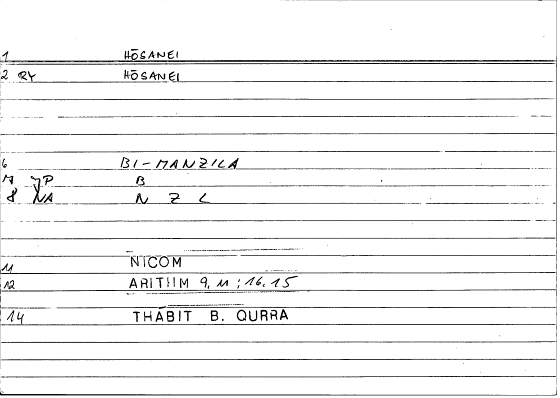 1 HŌSANEI
2 RY HŌSANEI
6 BI-MANZILA
7 JP B
8 NA N Z L
11 NICOM
12 ARITHM 9, 11 ; 16.15
14 THABIT B. QURRA